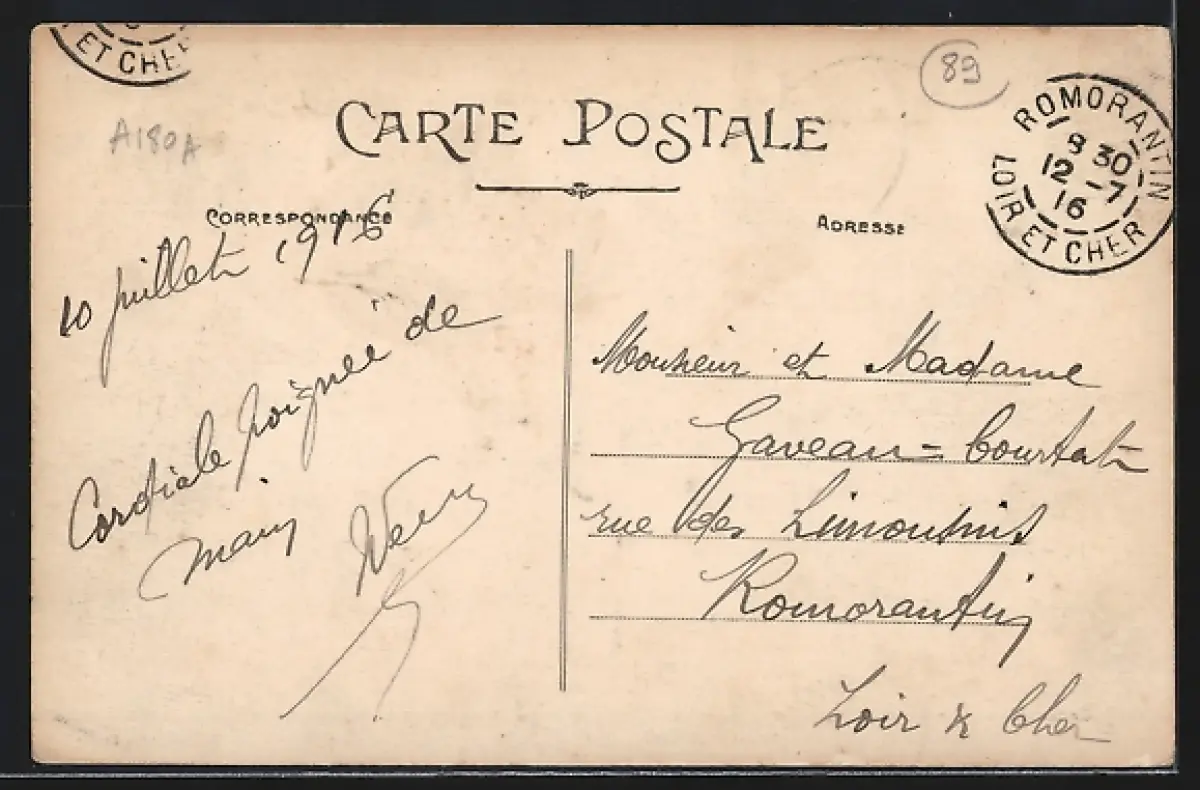 ET CHER
89
A180A
CARTE POSTALE
ROMORANTIN
8 30
12 - 7
16
LOIR ET CHER
CORRESPONDANCE
ADRESSE
10 juillet 1916
Cordiale poignée de
main
Monsieur et Madame
Gaveau = Courtat
rue des Limousins
Romorantin
Loir & Cher